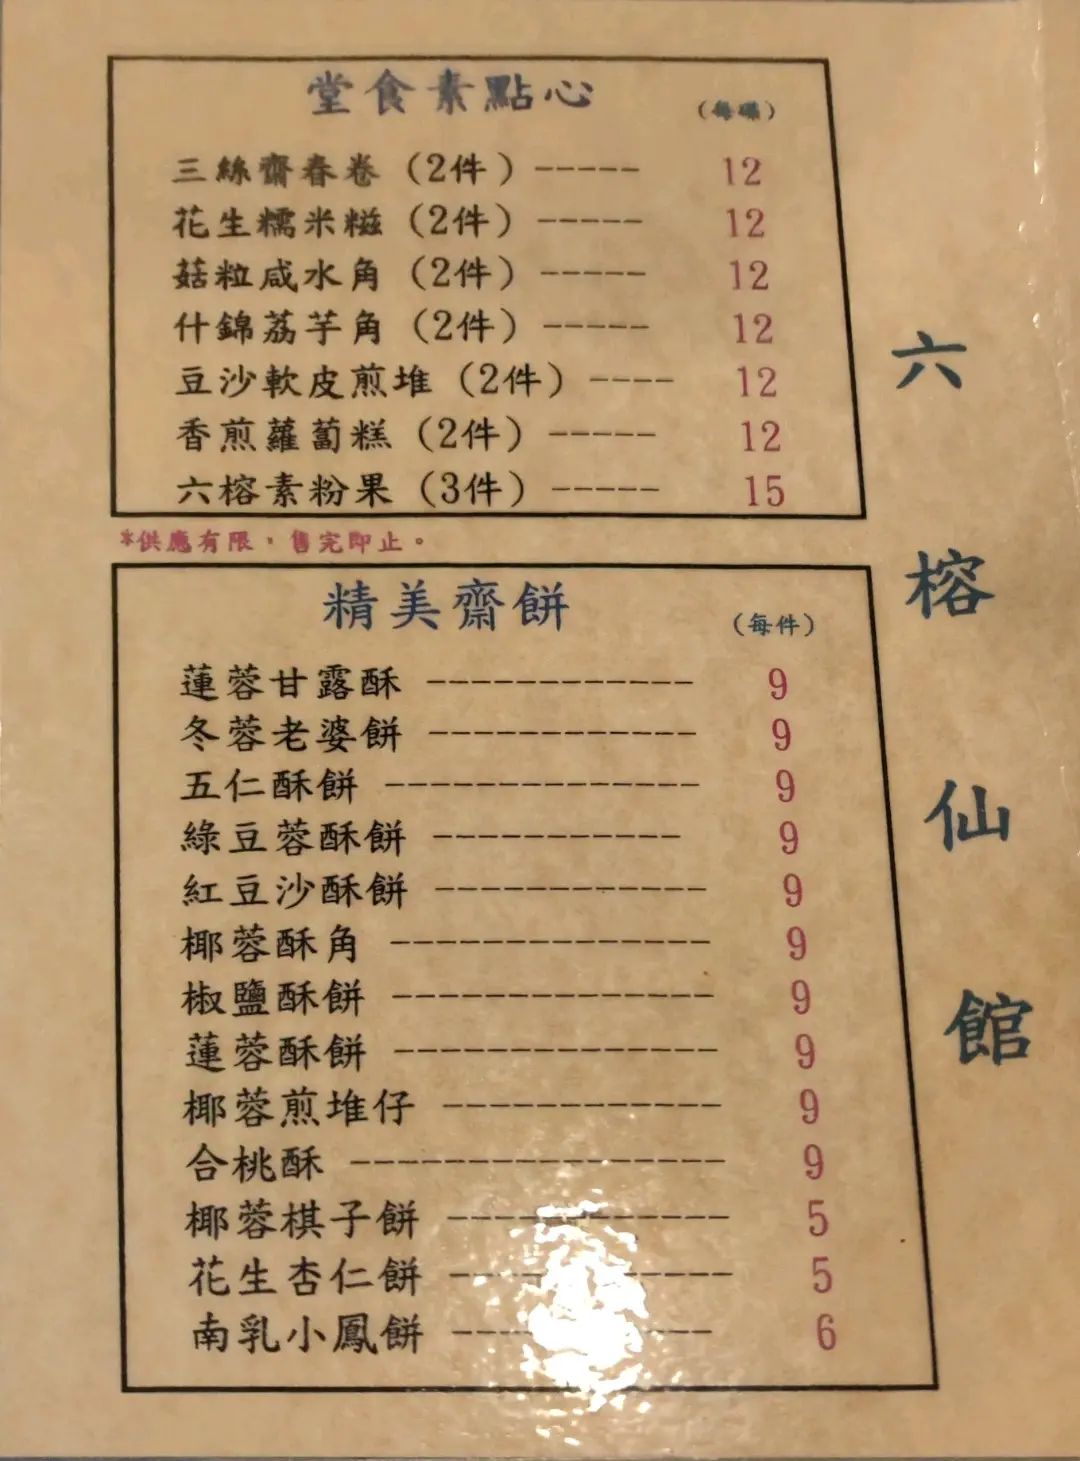 堂食素點心 (每碟)
三絲齋春卷 (2件) ----- 12
花生糯米糍 (2件) ----- 12
菇粒咸水角 (2件) ----- 12
什錦荔芋角 (2件) ----- 12
豆沙軟皮煎堆 (2件) ---- 12
香煎蘿蔔糕 (2件) ----- 12
六榕素粉果 (3件) ----- 15
*供應有限，售完即止。
精美齋餅 (每件)
蓮蓉甘露酥 ------------ 9
冬蓉老婆餅 ------------ 9
五仁酥餅 -------------- 9
綠豆蓉酥餅 ----------- 9
紅豆沙酥餅 ------------ 9
椰蓉酥角 -------------- 9
椒鹽酥餅 -------------- 9
蓮蓉酥餅 -------------- 9
椰蓉煎堆仔 ------------ 9
合桃酥 ---------------- 9
椰蓉棋子餅 ------------ 5
花生杏仁餅 ------------ 5
南乳小鳳餅 ----------- 6
六榕仙館